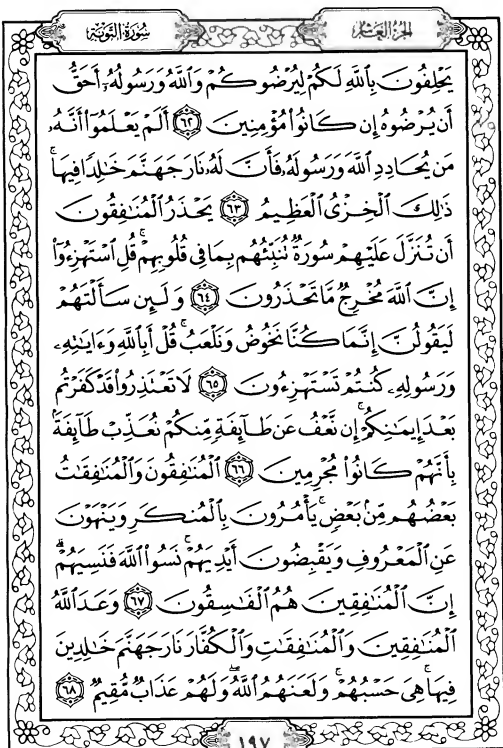 سُورَةُ التَّوْبَةِ
الجُزْءُ العَاشِر
يَحْلِفُونَ بِٱللَّهِ لَكُمْ لِيُرْضُوكُمْ وَٱللَّهُ وَرَسُولُهُۥٓ أَحَقُّ
أَن يُرْضُوهُ إِن كَانُوا۟ مُؤْمِنِينَ ٦٢ أَلَمْ يَعْلَمُوٓا۟ أَنَّهُۥ
مَن يُحَادِدِ ٱللَّهَ وَرَسُولَهُۥ فَأَنَّ لَهُۥ نَارَ جَهَنَّمَ خَٰلِدًا فِيهَاۚ
ذَٰلِكَ ٱلْخِزْىُ ٱلْعَظِيمُ ٦٣ يَحْذَرُ ٱلْمُنَٰفِقُونَ
أَن تُنَزَّلَ عَلَيْهِمْ سُورَةٌ تُنَبِّئُهُم بِمَا فِى قُلُوبِهِمْۚ قُلِ ٱسْتَهْزِءُوٓا۟
إِنَّ ٱللَّهَ مُخْرِجٌ مَّا تَحْذَرُونَ ٦٤ وَلَئِن سَأَلْتَهُمْ
لَيَقُولُنَّ إِنَّمَا كُنَّا نَخُوضُ وَنَلْعَبُۚ قُلْ أَبِٱللَّهِ وَءَايَٰتِهِۦ
وَرَسُولِهِۦ كُنتُمْ تَسْتَهْزِءُونَ ٦٥ لَا تَعْتَذِرُوا۟ قَدْ كَفَرْتُم
بَعْدَ إِيمَٰنِكُمْۚ إِن نَّعْفُ عَن طَآئِفَةٍ مِّنكُمْ نُعَذِّبْ طَآئِفَةًۢ
بِأَنَّهُمْ كَانُوا۟ مُجْرِمِينَ ٦٦ ٱلْمُنَٰفِقُونَ وَٱلْمُنَٰفِقَٰتُ
بَعْضُهُم مِّنۢ بَعْضٍۚ يَأْمُرُونَ بِٱلْمُنكَرِ وَيَنْهَوْنَ
عَنِ ٱلْمَعْرُوفِ وَيَقْبِضُونَ أَيْدِيَهُمْۚ نَسُوا۟ ٱللَّهَ فَنَسِيَهُمْۗ
إِنَّ ٱلْمُنَٰفِقِينَ هُمُ ٱلْفَٰسِقُونَ ٦٧ وَعَدَ ٱللَّهُ
ٱلْمُنَٰفِقِينَ وَٱلْمُنَٰفِقَٰتِ وَٱلْكُفَّارَ نَارَ جَهَنَّمَ خَٰلِدِينَ
فِيهَاۚ هِىَ حَسْبُهُمْۚ وَلَعَنَهُمُ ٱللَّهُۖ وَلَهُمْ عَذَابٌ مُّقِيمٌ ٦٨
١٩٧